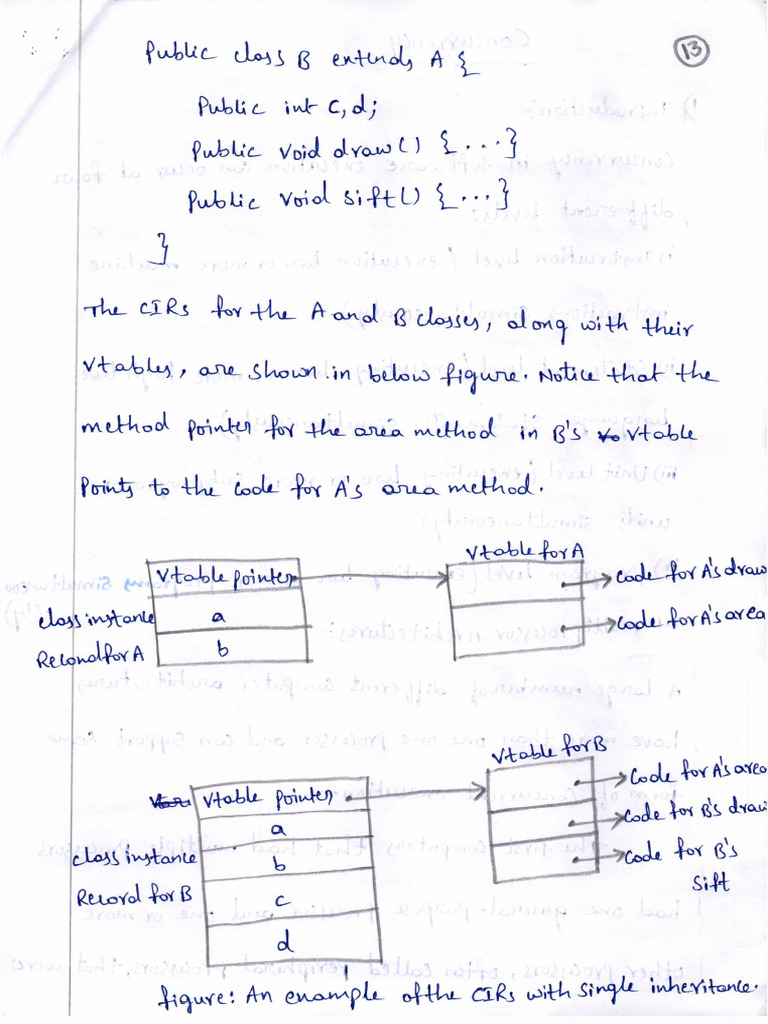 13
Public class B extends A {
Public int c,d;
Public void draw() {...}
Public void sift() {...}
}
The CIRs for the A and B classes, along with their
Vtables, are shown in below figure. Notice that the
method pointer for the area method in B's Vtable
Points to the code for A's area method.
Vtable for A
Vtable pointer
code for A's draw
class instance
a
code for A's area
Record for A
b
Vtable for B
Code for A's area
Vtable pointer
Code for B's draw
a
class instance
b
Code for B's
Sift
Record for B
c
d
figure: An example of the CIRs with single inheritance.